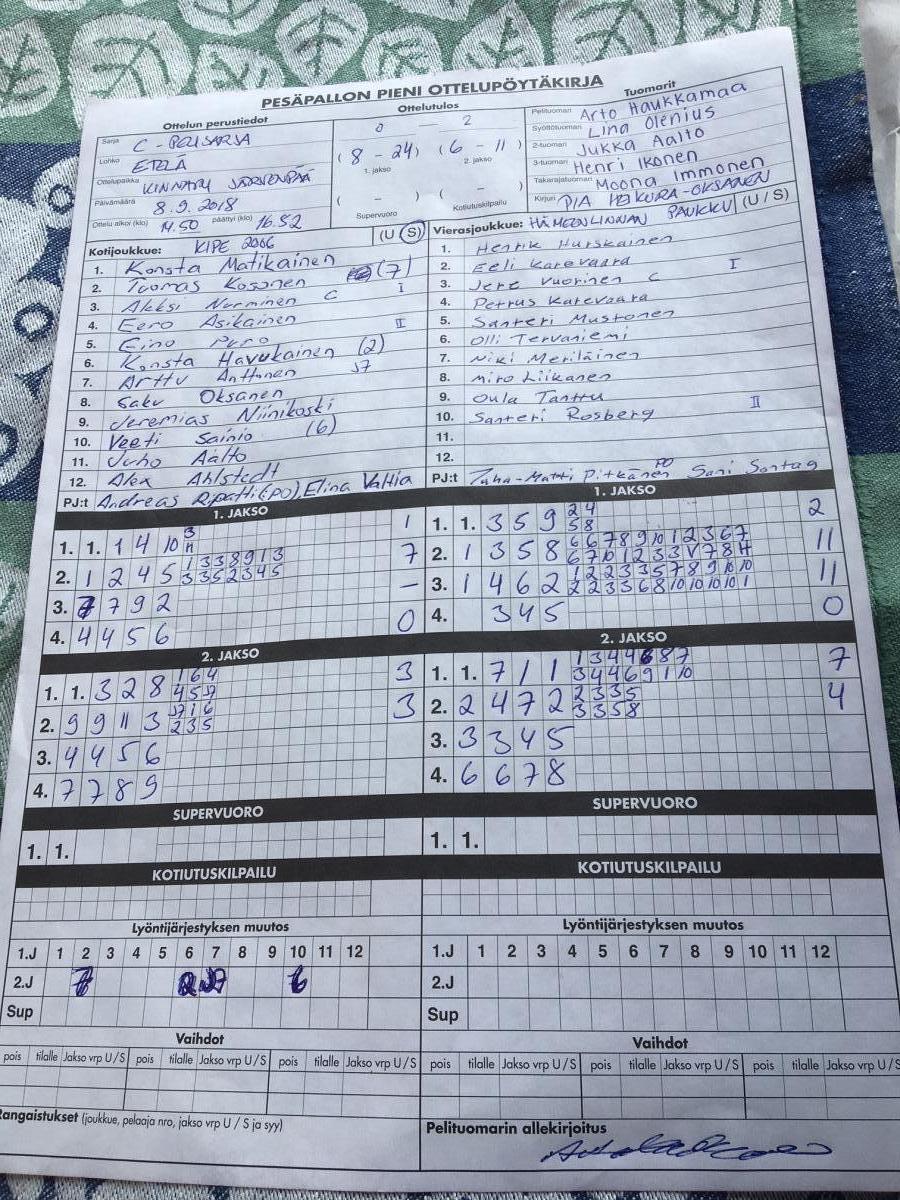 PESÄPALLON PIENI OTTELUPÖYTÄKIRJA
Ottelun perustiedot
Sarja C-PELISARJA
Lohko ETELÄ
Ottelupaikka KINNARI JÄRVENPÄÄ
Päivämäärä 8.9.2018
Ottelu alkoi (klo) 14.50 päättyi (klo) 16.52
Ottelutulos
0 – 2
(8 – 24) (6 – 11)
1. jakso 2. jakso
( – ) ( – )
Supervuoro Kotiutuskilpailu
Tuomarit
Pelituomari Arto Haukkamaa
Syöttötuomari Lina Olenius
2-tuomari Jukka Aalto
3-tuomari Henri Ikonen
Takarajatuomari Moona Immonen
Kirjuri PIA HEIKURA-OKSANEN
Kotijoukkue: KIPE 2006 (U/S)
1. Konsta Matikainen
2. Tuomas Kosonen (7)
3. Aleksi Nurminen C I
4. Eero Asikainen
5. Eino Puro II
6. Konsta Havukainen (2)
7. Arttu Anttonen J7
8. Saku Oksanen
9. Jeremias Niinikoski
10. Veeti Sainio (6)
11. Juho Aalto
12. Alex Ahlstedt
PJ:t Andreas Ripatti (PO), Elina Valtia
Vierasjoukkue: HÄMEENLINNAN PAUKKU (U/S)
1. Henrik Hurskainen
2. Eeli Karevaara
3. Jere Vuorinen C I
4. Petrus Karevaara
5. Santeri Mustonen
6. Olli Tervaniemi
7. Niki Meriläinen
8. Miro Liikanen
9. Oula Tanttu
10. Santeri Rosberg II
11.
12.
PJ:t Juha-Matti Pitkänen PO Sani Sontag
1. JAKSO
1. 1. 1 4 10 3 11 1
2. 1 2 4 5 1 3 3 8 9 1 3 7
3 3 5 2 3 4 5
3. 7 7 9 2 –
4. 4 4 5 6 0
1. JAKSO
1. 1. 3 5 9 2 4 2
5 8
2. 1 3 5 8 6 6 7 8 9 10 1 2 3 6 7 11
3. 1 4 6 2 1 2 2 3 3 5 7 8 9 10 10 11
2 2 3 3 6 8 10 10 10 10 1
4. 3 4 5 0
2. JAKSO
1. 1. 3 2 8 1 6 4 3
4 5 J7
2. 9 9 11 3 J7 1 6 3
2 3 5
3. 4 4 5 6
4. 7 7 8 9
2. JAKSO
1. 1. 7 1 1 1 3 4 4 6 8 7 7
3 4 4 6 9 1 10
2. 2 4 7 2 2 3 3 5 4
3 3 5 8
3. 3 3 4 5
4. 6 6 7 8
SUPERVUORO
1. 1.
SUPERVUORO
1. 1.
KOTIUTUSKILPAILU
KOTIUTUSKILPAILU
Lyöntijärjestyksen muutos
1.J 1 2 3 4 5 6 7 8 9 10 11 12
2.J 7 2 J7 6
Sup
Lyöntijärjestyksen muutos
1.J 1 2 3 4 5 6 7 8 9 10 11 12
2.J
Sup
Vaihdot
pois tilalle Jakso vrp U/S pois tilalle Jakso vrp U/S pois tilalle Jakso vrp U/S
Vaihdot
pois tilalle Jakso vrp U/S pois tilalle Jakso vrp U/S pois tilalle Jakso vrp U/S
Rangaistukset (joukkue, pelaaja nro, jakso vrp U / S ja syy)
Pelituomarin allekirjoitus